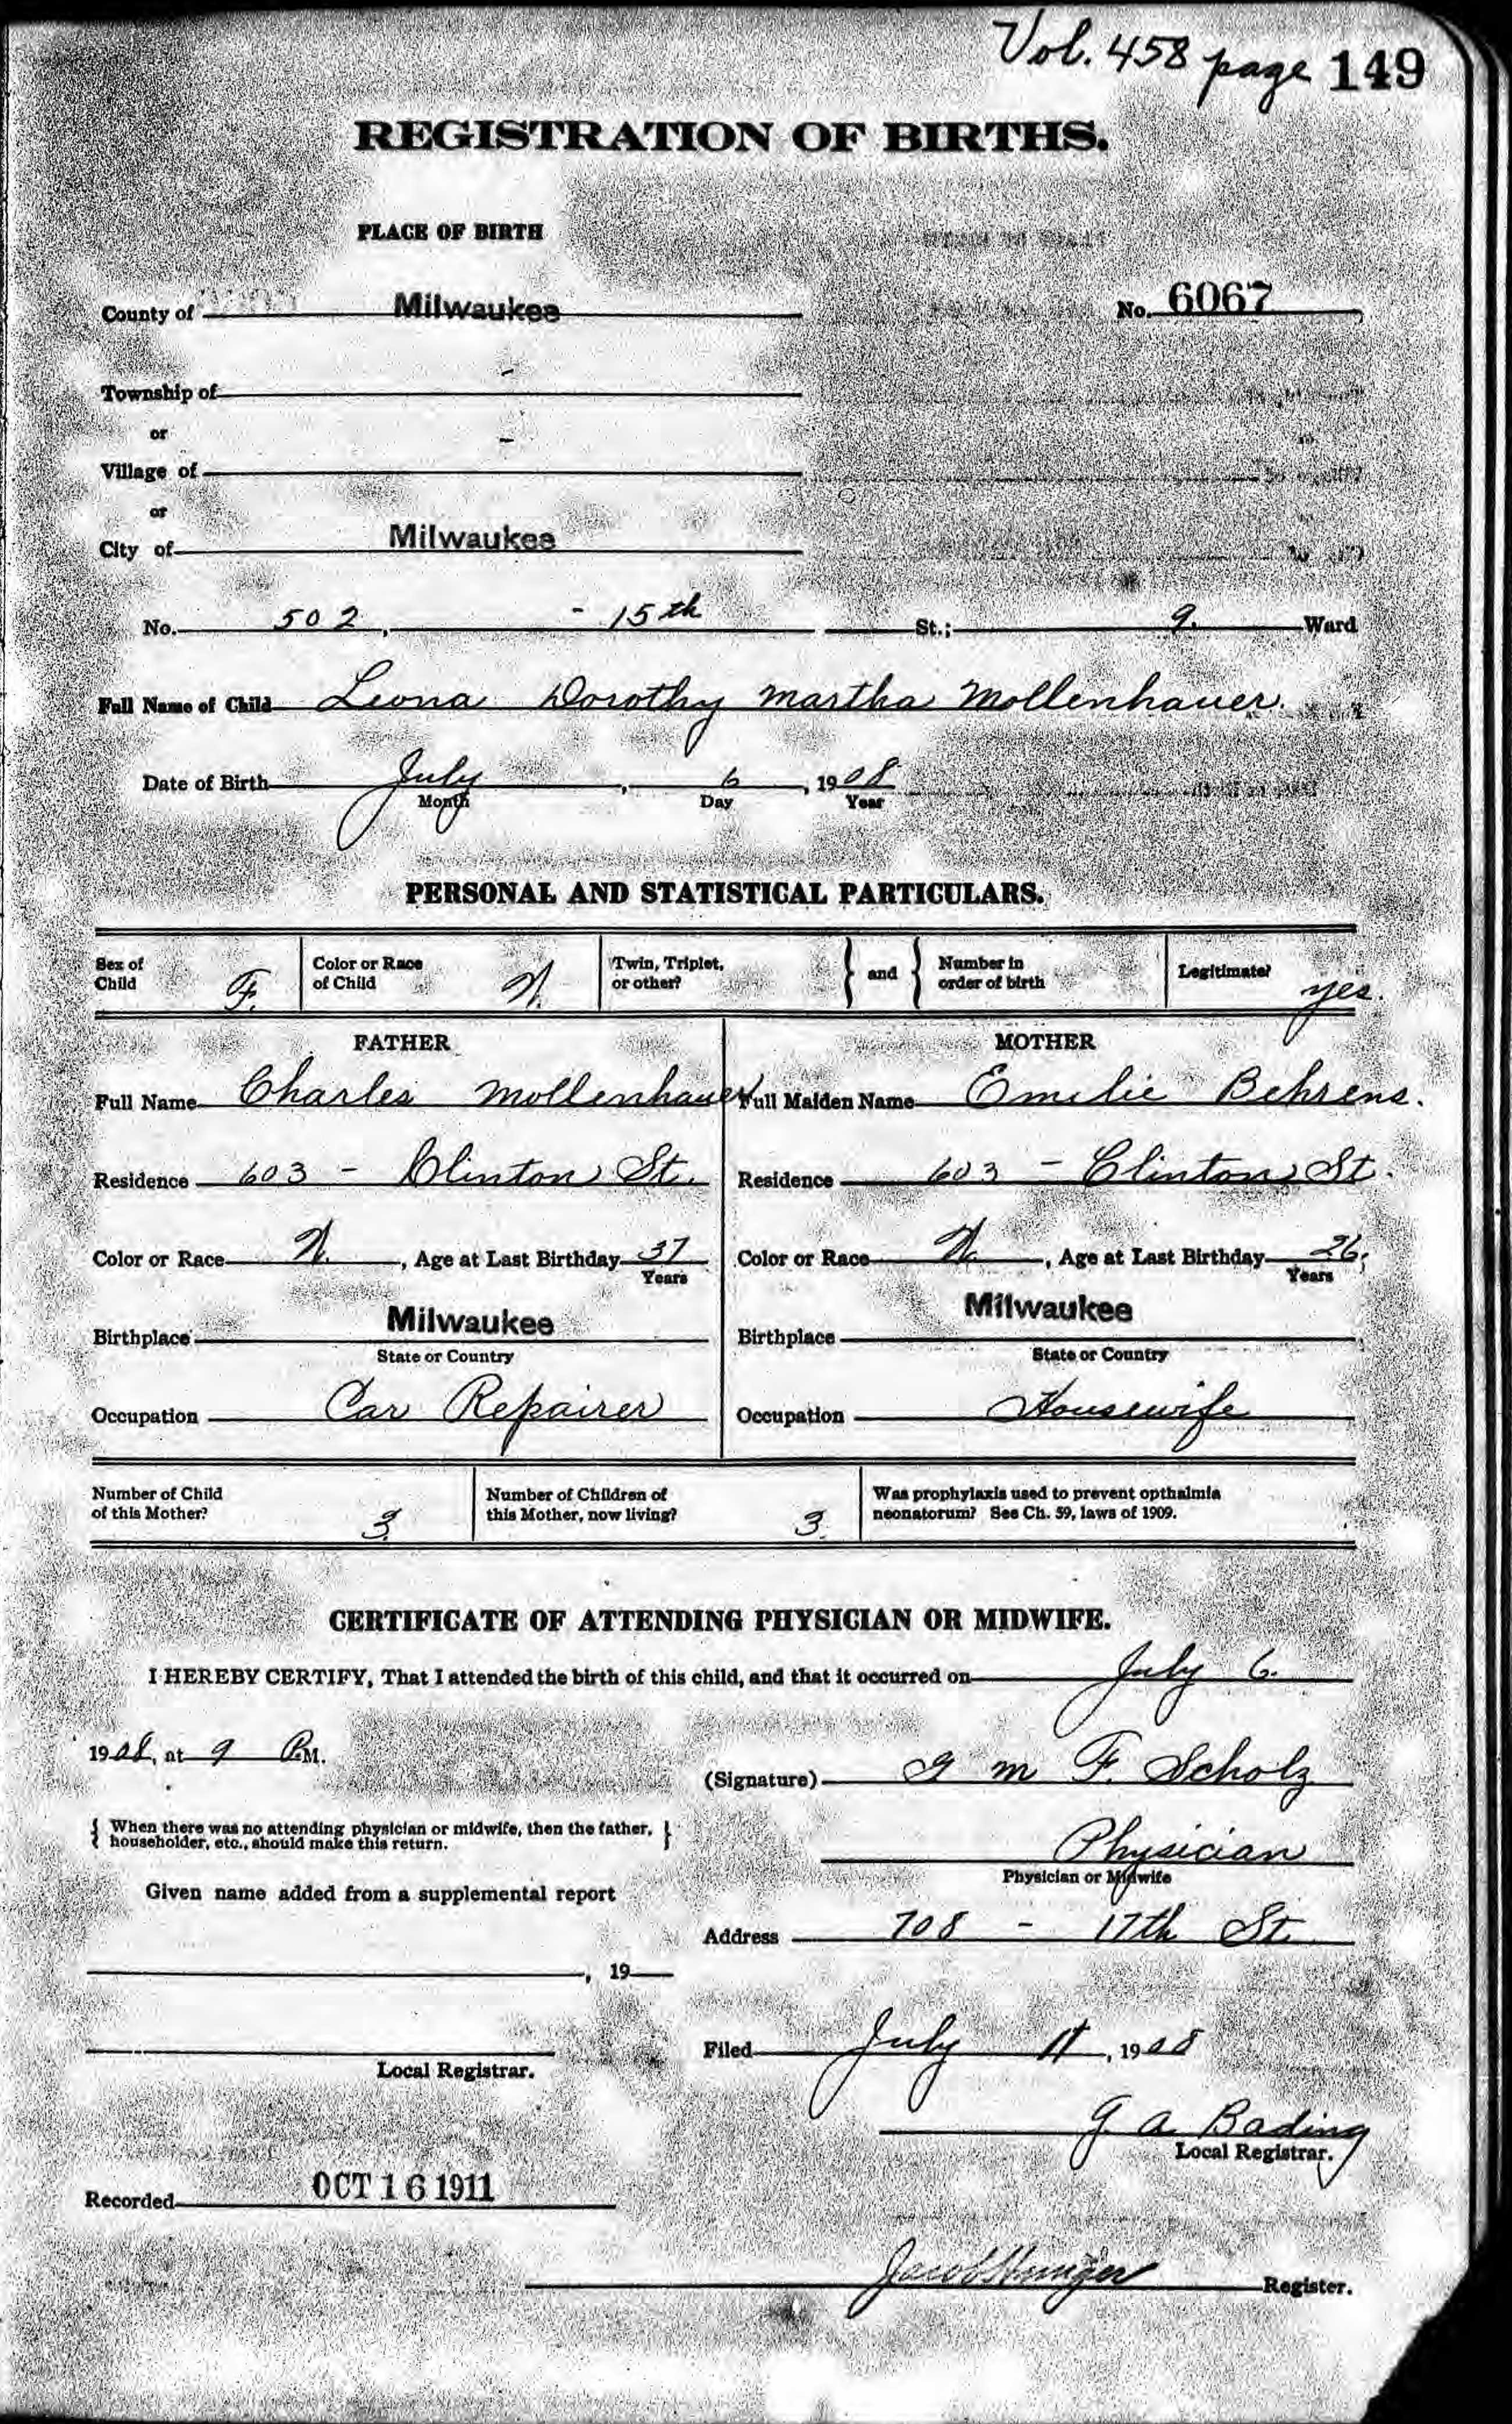 Vol. 458 page 149
REGISTRATION OF BIRTHS.
PLACE OF BIRTH
County of Milwaukee No. 6067
Township of -
or -
Village of
or
City of Milwaukee
No. 502, - 15th St.; 9. Ward
Full Name of Child Leona Dorothy Martha Mollenhauer.
Date of Birth July, 6, 1908
Month Day Year
PERSONAL AND STATISTICAL PARTICULARS.
Sex of Child F. Color or Race of Child W. Twin, Triplet, or other? } and { Number in order of birth Legitimate? yes.
FATHER MOTHER
Full Name Charles Mollenhauer Full Maiden Name Emilie Behrens.
Residence 603 - Clinton St. Residence 603 - Clinton St.
Color or Race W., Age at Last Birthday 37 Color or Race W., Age at Last Birthday 26.
Years Years
Birthplace Milwaukee Birthplace Milwaukee
State or Country State or Country
Occupation Car Repairer Occupation Housewife
Number of Child of this Mother? 3. Number of Children of this Mother, now living? 3. Was prophylaxis used to prevent opthalmia neonatorum? See Ch. 59, laws of 1909.
CERTIFICATE OF ATTENDING PHYSICIAN OR MIDWIFE.
I HEREBY CERTIFY, That I attended the birth of this child, and that it occurred on July 6.
1908, at 9 P.M.
(Signature) G M F. Scholz
{ When there was no attending physician or midwife, then the father, householder, etc., should make this return. }
Physician
Physician or Midwife
Given name added from a supplemental report
Address 708 - 17th St.
, 19
Filed July 11, 1908
Local Registrar.
G. A. Bading
Local Registrar.
Recorded OCT 16 1911
Register.